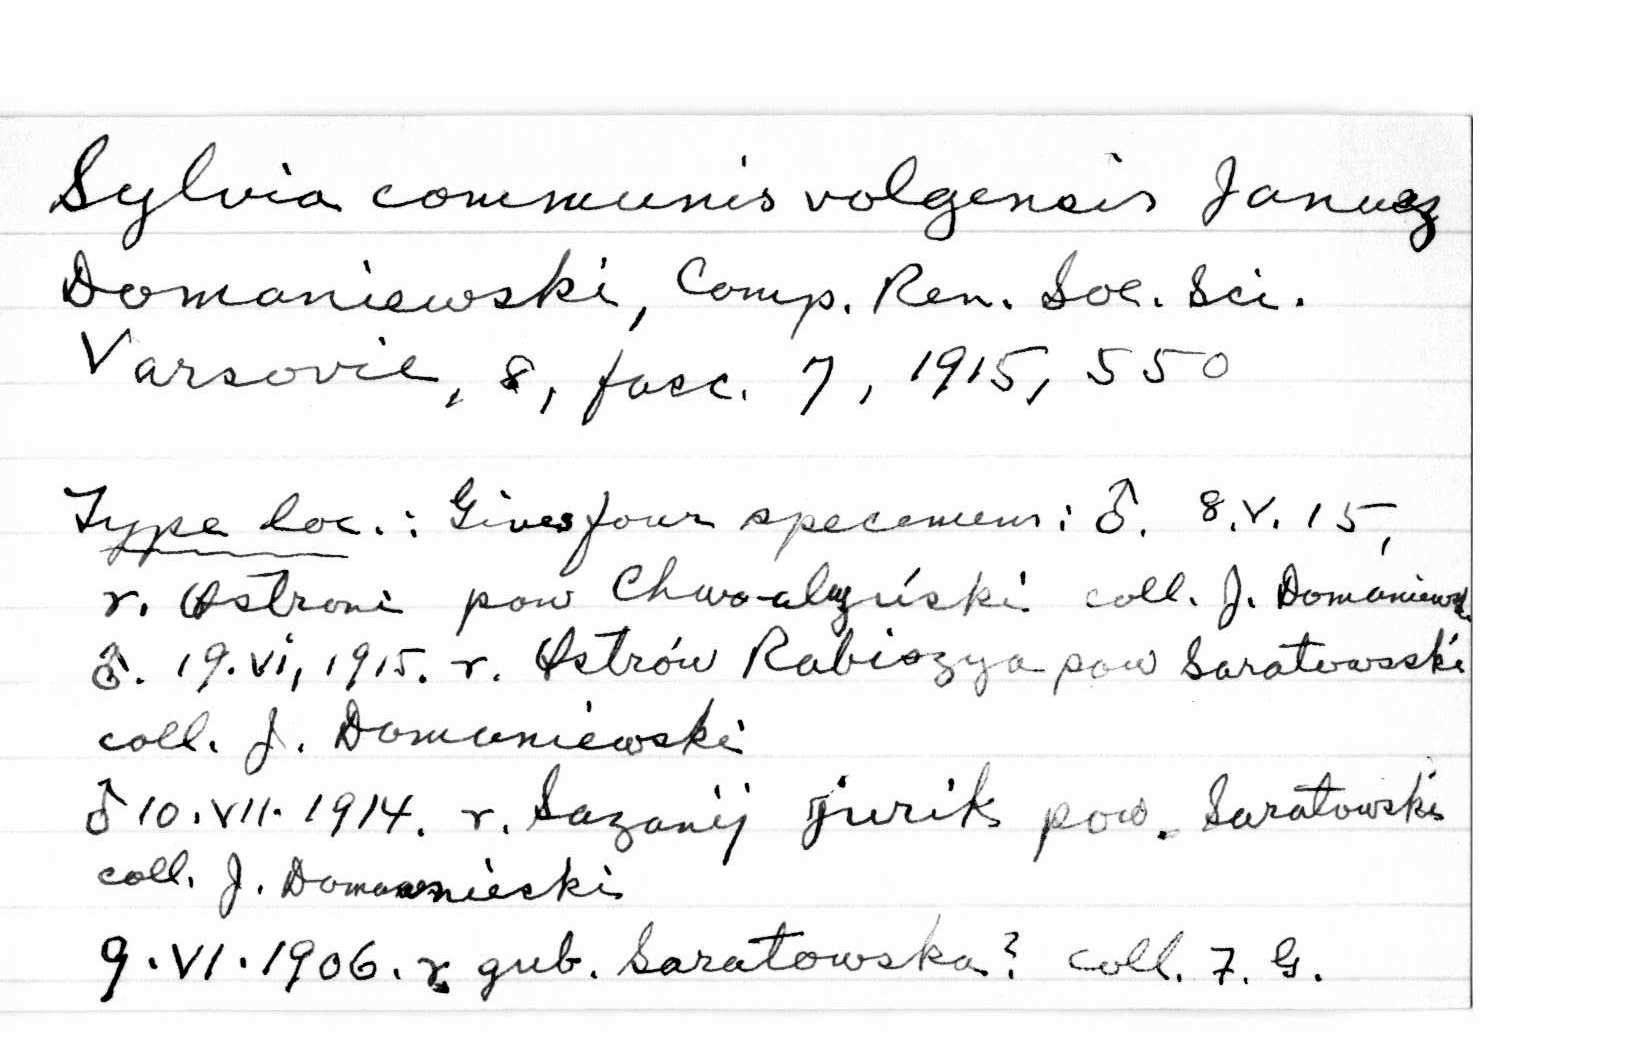 Sylvia communis volgensis Janusz
Domaniewski, Comp. Ren. Soc. Sci.
Varsovie, 8, fasc. 7, 1915, 550
Type loc.: Gives four specemens: ♂. 8.V.15,
r. Ostroni pow coll. J. Domaniewsk
♂. 19.VI, 1915. r. Ostrów pow Saratowski
coll. J. Domaniewski
♂ 10.VII.1914. r. Sazanij jurik pow. Saratowski
coll. J.
9.VI.1906. r. gub. Saratowska? coll. 7. G.